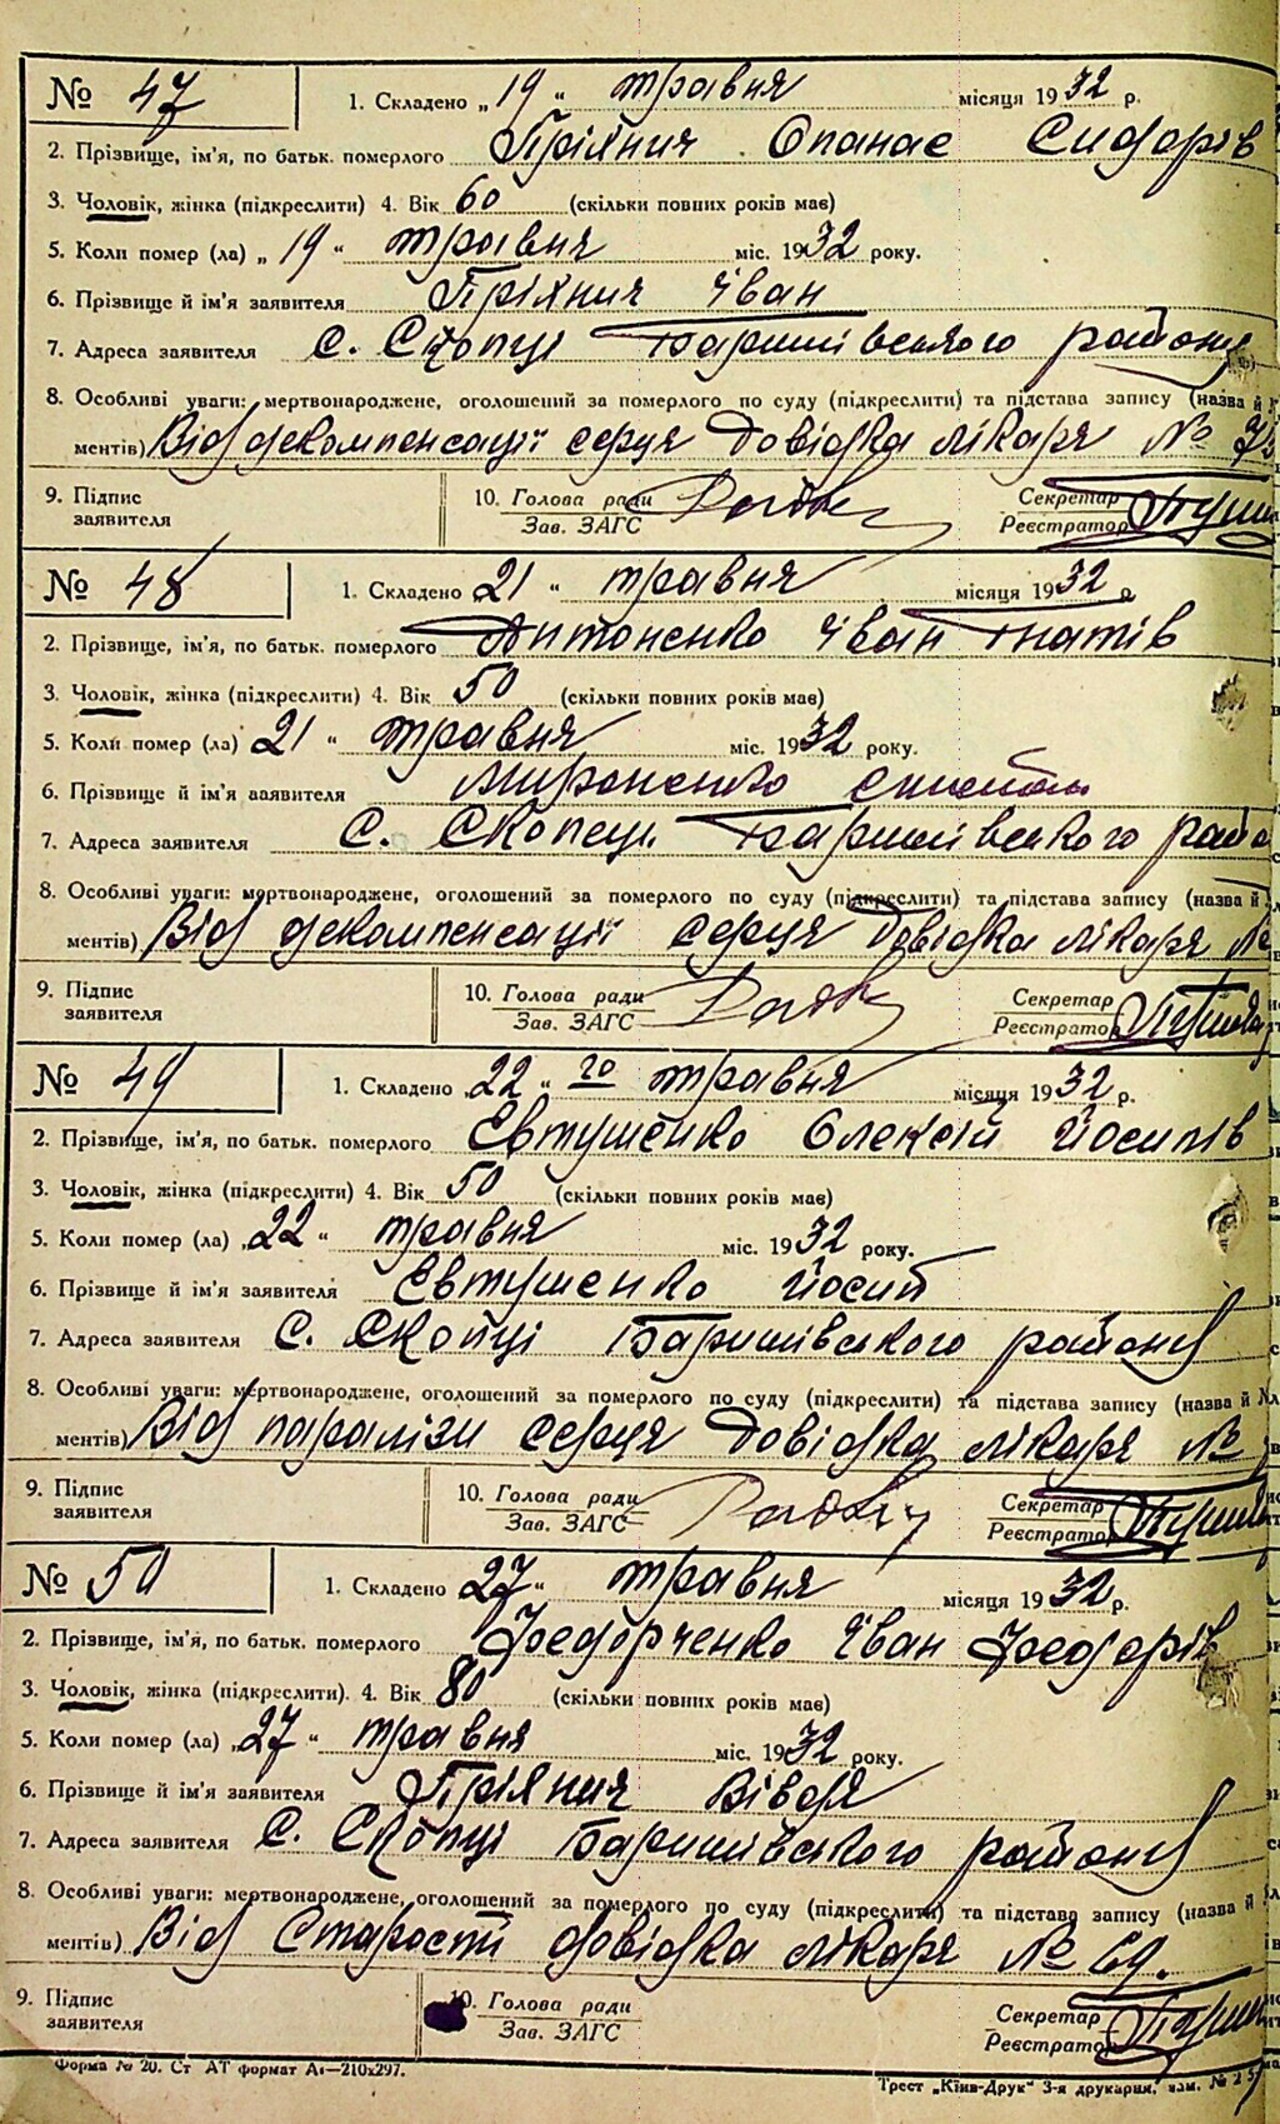 № 47 1. Складено „19“ травня місяця 1932 р.
2. Прізвище, ім'я, по батьк. померлого Пріхнич Опанас Сидорів
3. Чоловік, жінка (підкреслити) 4. Вік 60 (скільки повних років має)
5. Коли помер (ла) „19“ травня міс. 1932 року.
6. Прізвище й ім'я заявителя Пріхнич Іван
7. Адреса заявителя с. Скопці Баришівського району
8. Особливі уваги: мертвонароджене, оголошений за померлого по суду (підкреслити) та підстава запису (назва й
ментів) Від декомпенсації серця Довідка лікаря №
9. Підпис заявителя 10. Голова ради Секретар
Зав. ЗАГС Реєстратор
№ 48 1. Складено 21“ травня місяця 1932 р
2. Прізвище, ім'я, по батьк. померлого Антоненко Іван Гнатів
3. Чоловік, жінка (підкреслити) 4. Вік 50 (скільки повних років має)
5. Коли помер (ла) 21“ травня міс. 1932 року.
6. Прізвище й ім'я заявителя Мироненко
7. Адреса заявителя С. Скопеці Баришівського
8. Особливі уваги: мертвонароджене, оголошений за померлого по суду (підкреслити) та підстава запису (назва й
ментів) Від декомпенсації серця Довідка лікаря №
9. Підпис заявителя 10. Голова ради Секретар
Зав. ЗАГС Реєстратор
№ 49 1. Складено „22“ го травня місяця 1932 р.
2. Прізвище, ім'я, по батьк. померлого Євтушенко Олексій Йосипів
3. Чоловік, жінка (підкреслити) 4. Вік 50 (скільки повних років має)
5. Коли помер (ла) „22“ травня міс. 1932 року.
6. Прізвище й ім'я заявителя Євтушенко Йосип
7. Адреса заявителя С. Скопці Баришівського району
8. Особливі уваги: мертвонароджене, оголошений за померлого по суду (підкреслити) та підстава запису (назва й
ментів) Від паралізи серця Довідка лікаря №
9. Підпис заявителя 10. Голова ради Секретар
Зав. ЗАГС Реєстратор
№ 50 1. Складено 27“ травня місяця 1932 р.
2. Прізвище, ім'я, по батьк. померлого Федорченко Іван Федорів
3. Чоловік, жінка (підкреслити). 4. Вік 80 (скільки повних років має)
5. Коли помер (ла) „27“ травня міс. 1932 року.
6. Прізвище й ім'я заявителя Пріхнич
7. Адреса заявителя С. Скопці Баришівського району
8. Особливі уваги: мертвонароджене, оголошений за померлого по суду (підкреслити) та підстава запису (назва й
ментів) Від Старости довідка лікаря № 69.
9. Підпис заявителя 10. Голова ради Секретар
Зав. ЗАГС Реєстратор
Форма № 20. Ст АТ формат А4—210х297.
Трест „Київ-Друк“ 3-я друкарня, зам. №